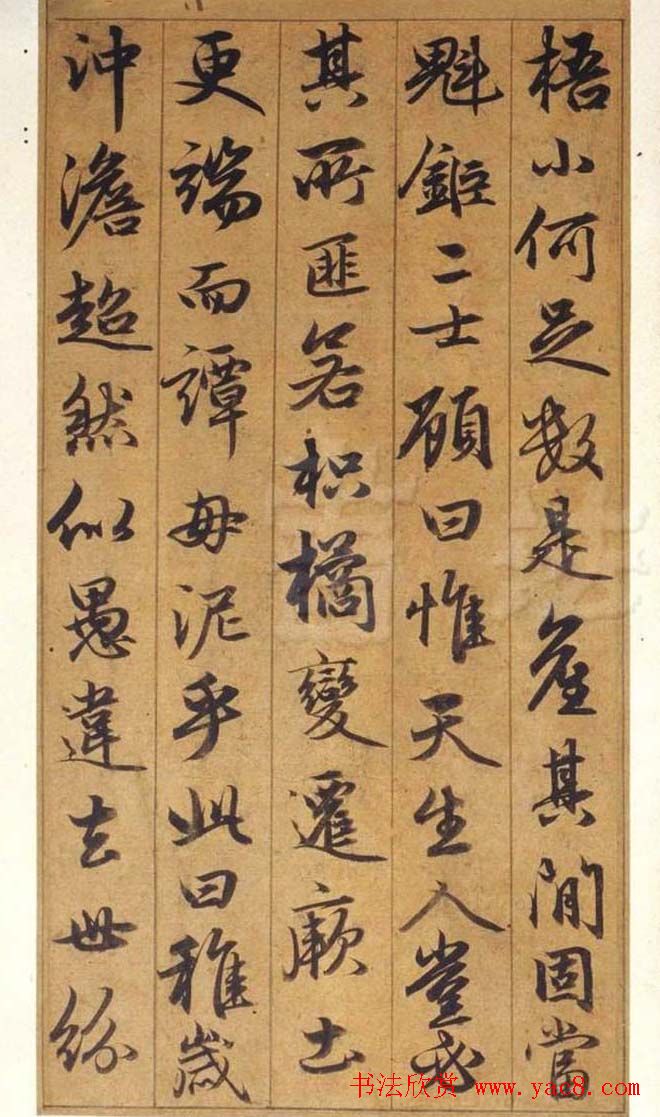 梧小何足数是產其間固當
魁鉅二士顧曰惟天生人豈必
其所匪若枳橘變遷厥土
更端而譚毋泥乎此曰稚歲
沖澹超然似愚違去世紛
书法欣赏 www.yac8.com